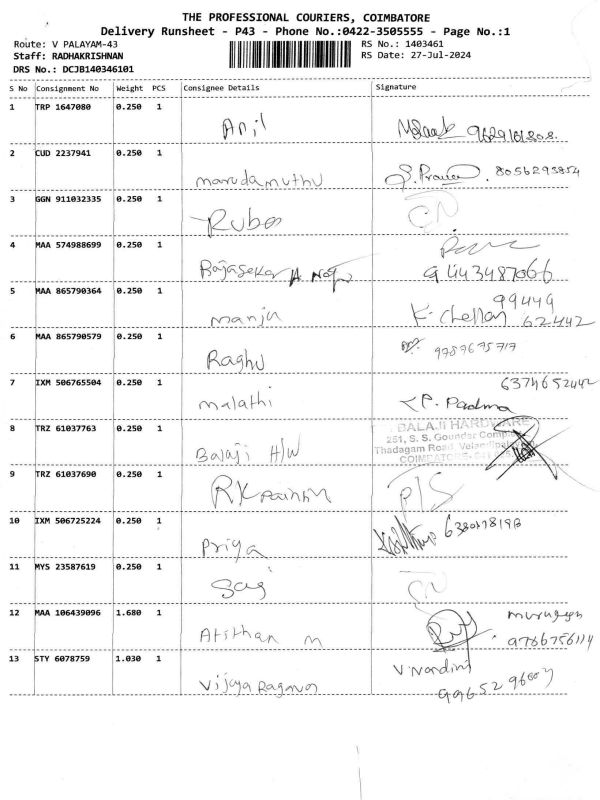 THE PROFESSIONAL COURIERS, COIMBATORE
Delivery Runsheet - P43 - Phone No.:0422-3505555 - Page No.:1
Route: V PALAYAM-43 RS No.: 1403461
Staff: RADHAKRISHNAN RS Date: 27-Jul-2024
DRS No.: DCJB140346101
S No Consignment No Weight PCS Consignee Details Signature
1 TRP 1647080 0.250 1 Anil
2 CUD 2237941 0.250 1 marudamuthu 8056293854
3 GGN 911032335 0.250 1 CN
4 MAA 574988699 0.250 1 Rajasekar A 9443487066
5 MAA 865790364 0.250 1 manju K. Chellan 99449
62442
6 MAA 865790579 0.250 1 Raghu
7 IXM 506765504 0.250 1 malathi 6374652442
P. Padma
8 TRZ 61037763 0.250 1 Balaji H/W BALAJI HARDWARE
251, S. S. Gounder
Thadagam Road
COIMBATORE
9 TRZ 61037690 0.250 1 RK P/S
10 IXM 506725224 0.250 1 Priya
11 MYS 23587619 0.250 1 CN
12 MAA 106439096 1.680 1 M murugan
9786756114
13 STY 6078759 1.030 1 V. Nandini